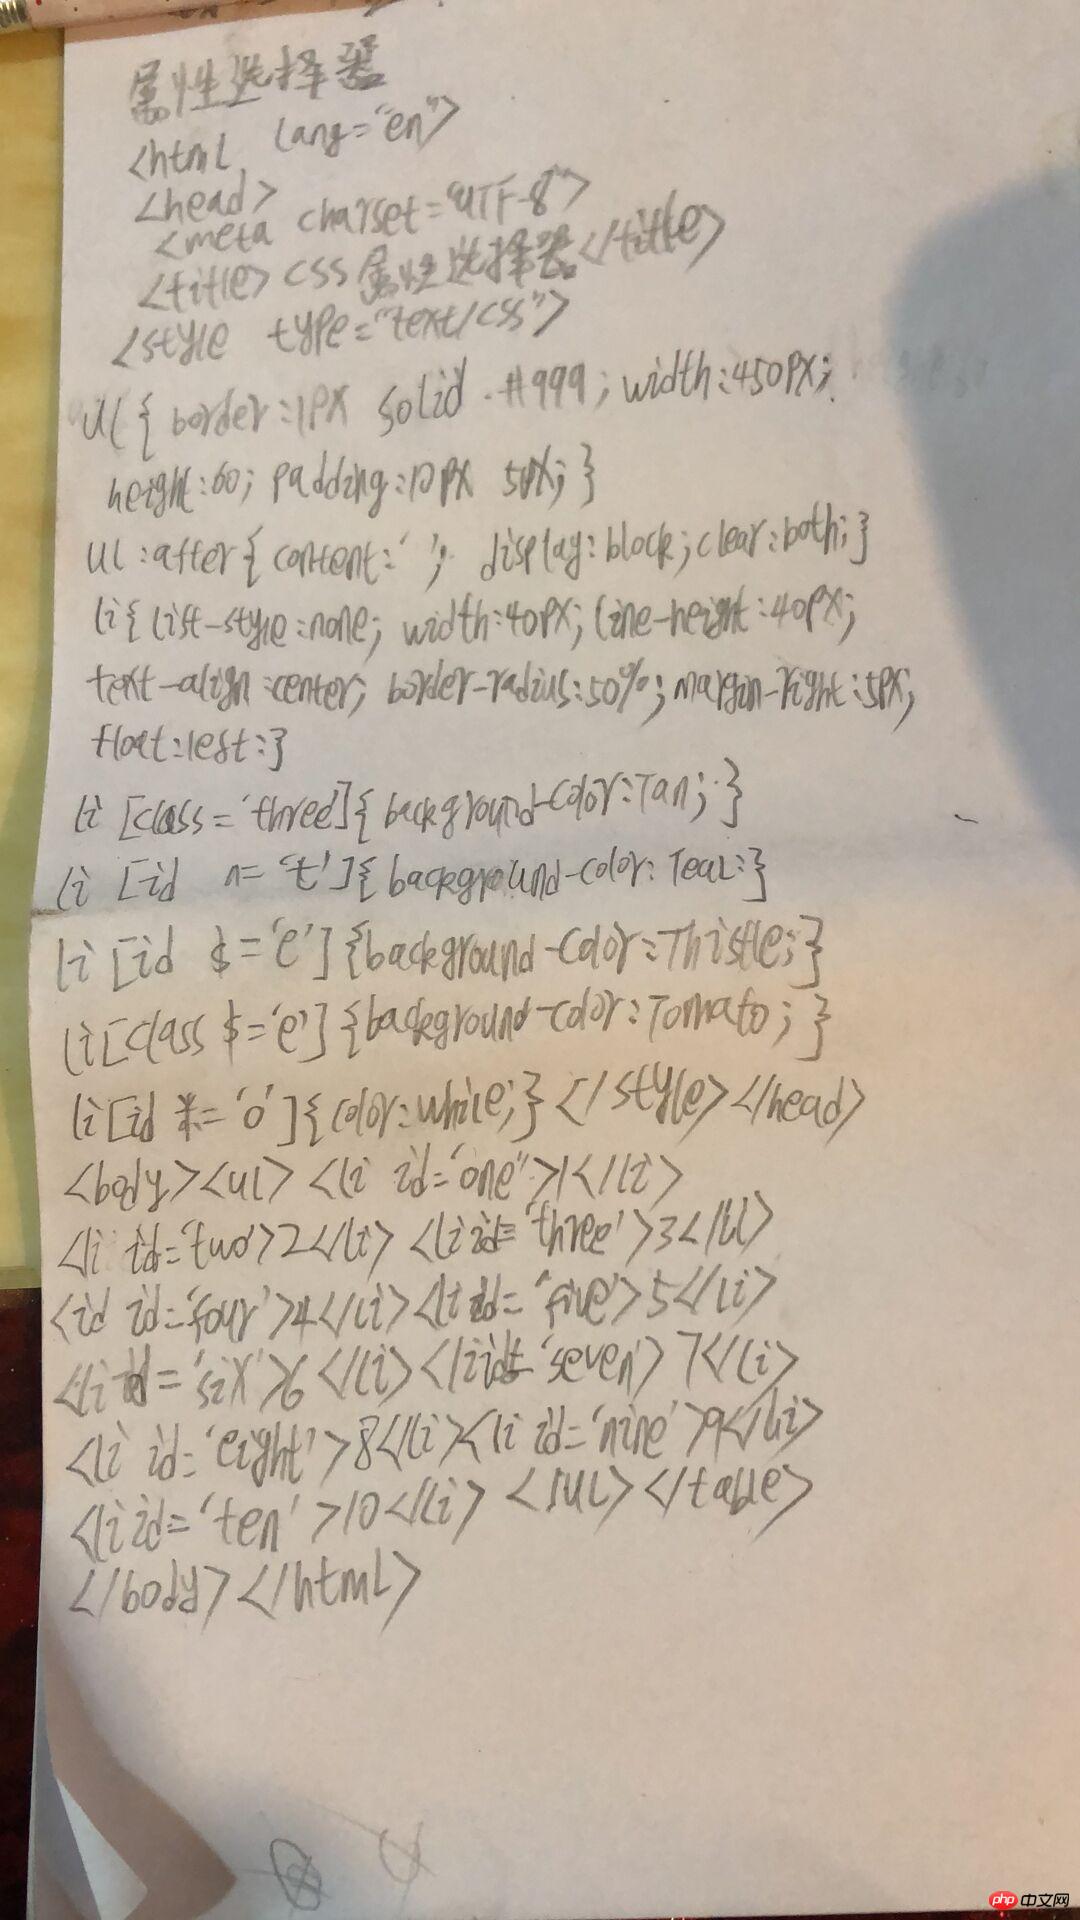 属性选择器
<html lang="en">
<head>
<meta charset="UTF-8">
<title>css属性选择器</title>
<style type="text/css">
ul{border:1px solid #999;width:450px;
height:60;padding:10px 5px;}
ul:after{content:' ';display:block;clear:both;}
li{list-style:none;width:40px;line-height:40px;
text-align:center;border-radius:50%;margin-right:5px;
float:lest:}
li [class='three]{background-color:Tan;}
li [id n='t']{background-color:Teal:}
li [id $='e']{background-color:Thistle;}
li[class $='e']{background-color:Tomato;}
li[id *='o']{color:while;}</style></head>
<body><ul><li id='one">1</li>
<li id='two'>2</li><li id='three'>3</ul>
<id id='four'>4</li><li id='five'>5</li>
<li id='six'>6</li></li id='seven'>7</li>
<li id='eight'>8</li><li id='nine'>9</li>
<li id='ten'>10</li></ul></table>
</body></html>
php中文网